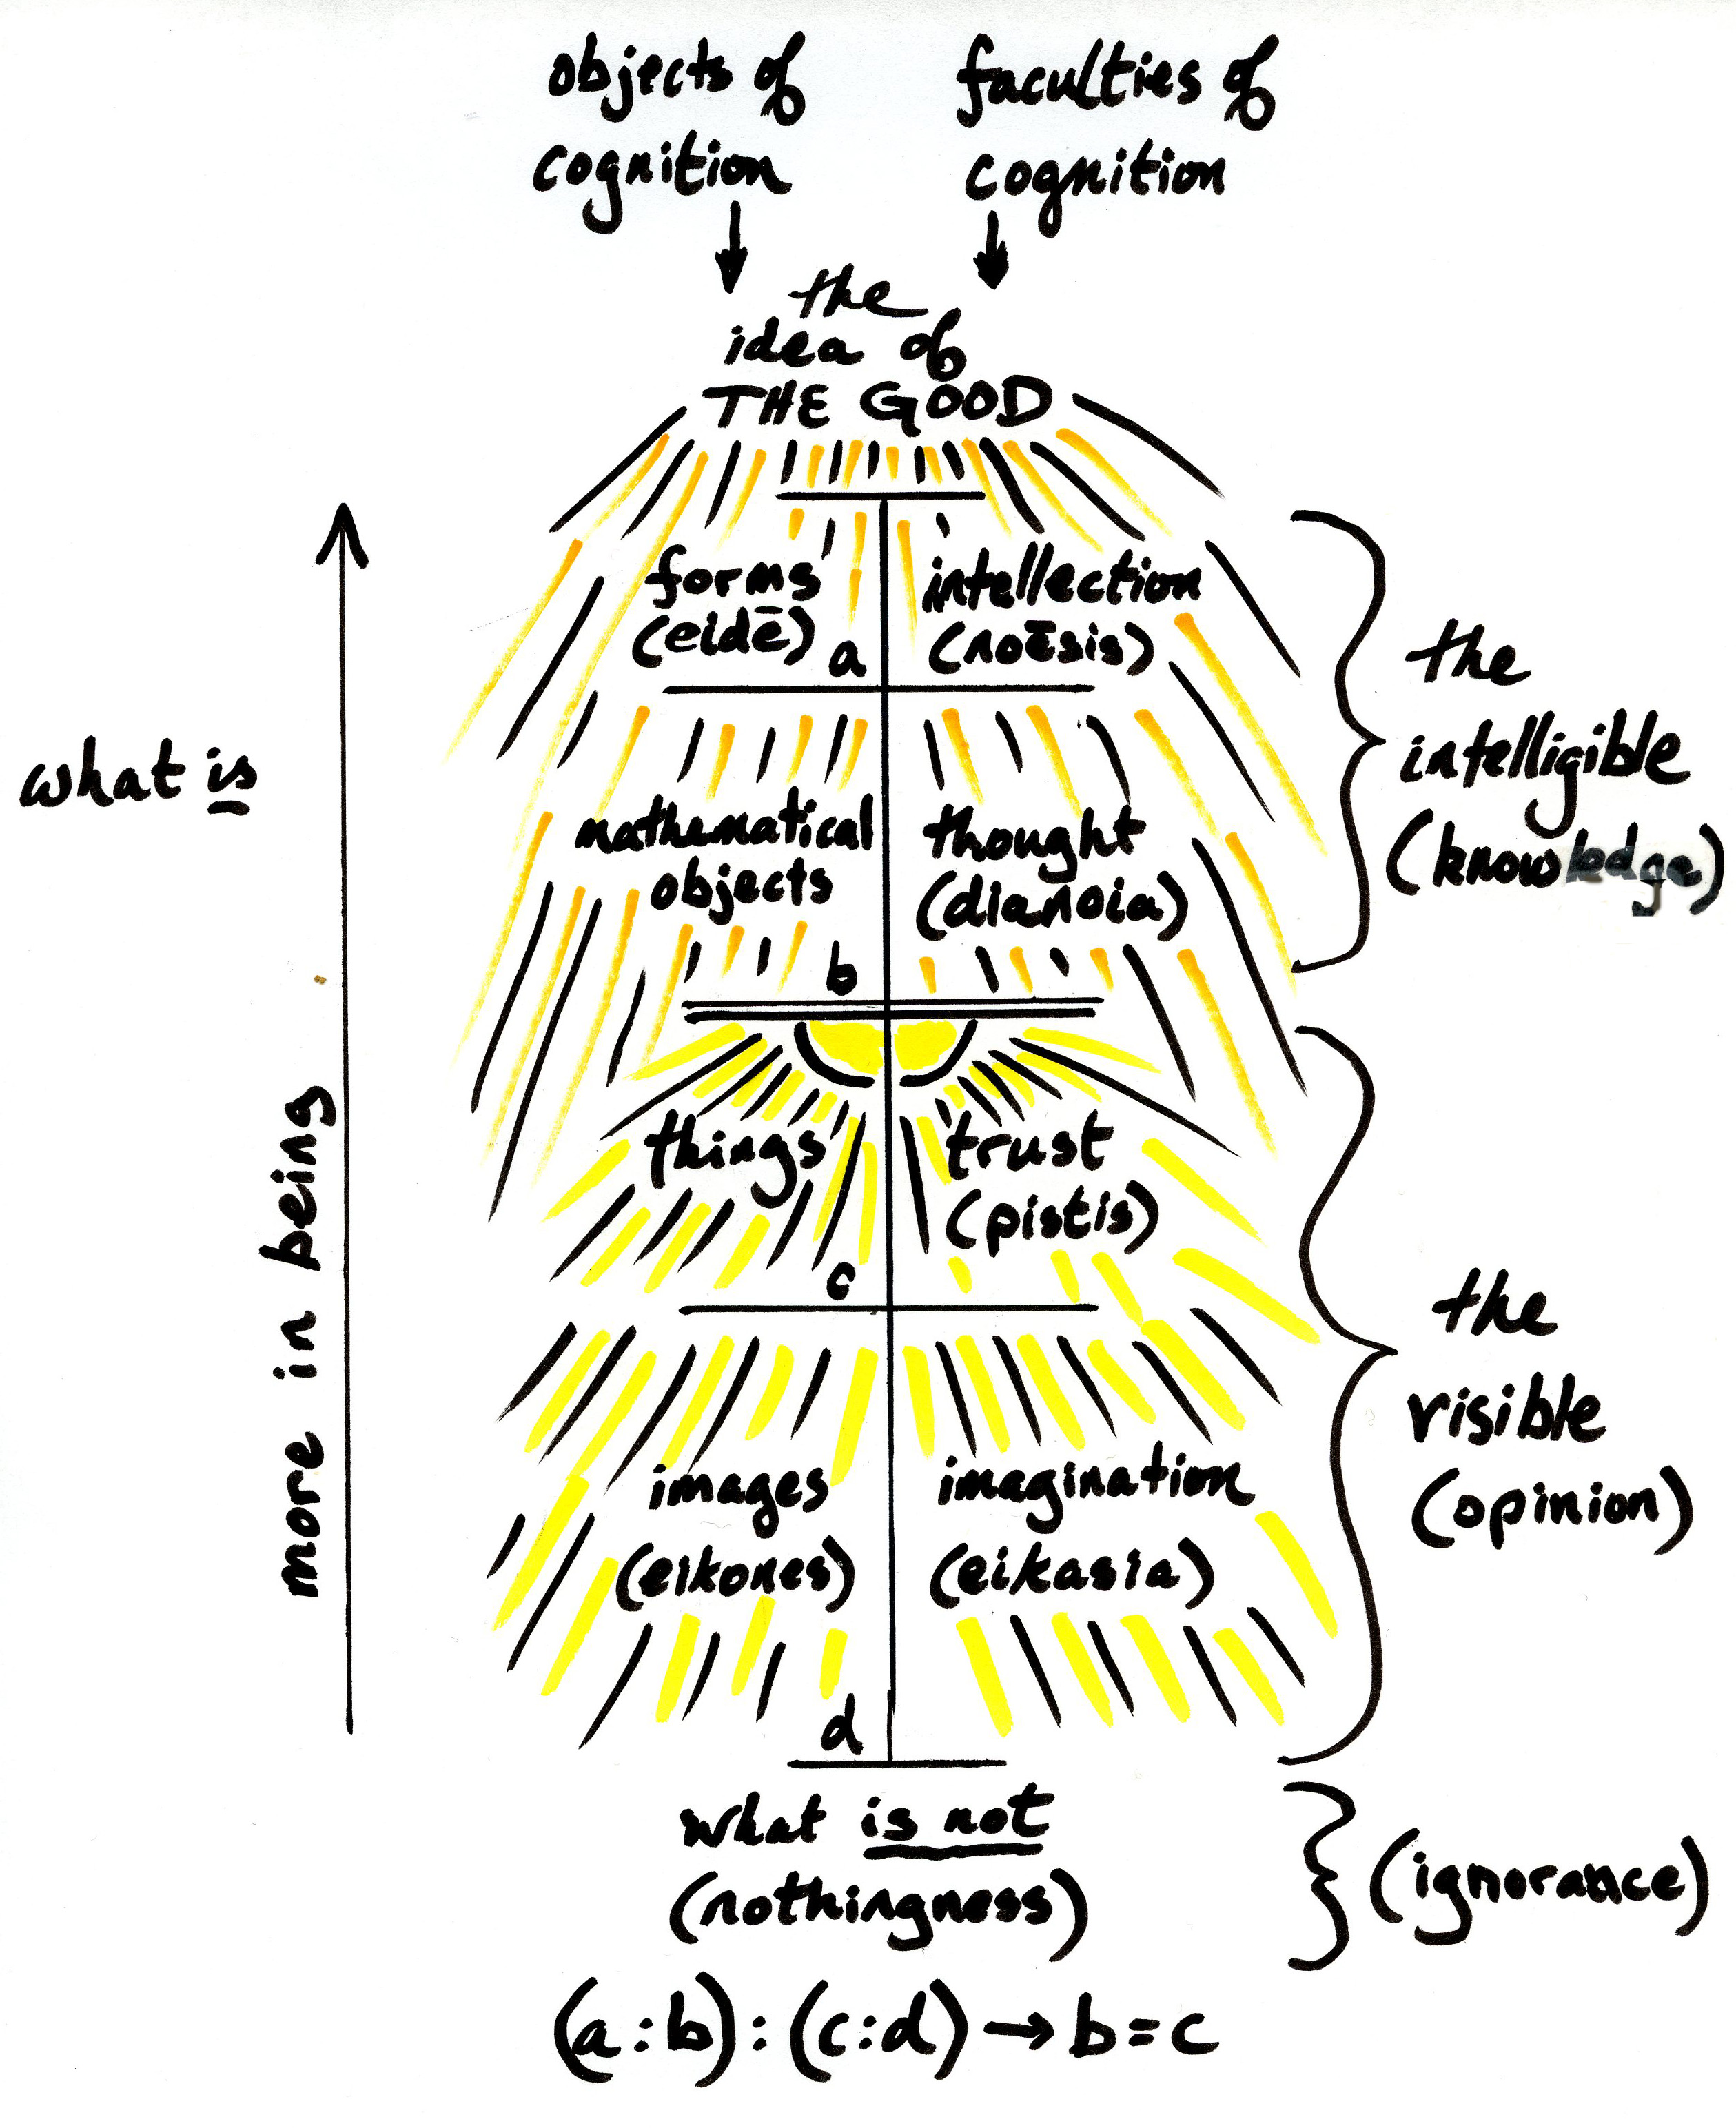 objects of
cognition
faculties of
cognition
the
idea of
THE GOOD
forms
(eidē)
a
intellection
(noēsis)
the
intelligible
(knowledge)
what is
mathematical
objects
b
thought
(dianoia)
things
c
trust
(pistis)
more in being
the
visible
(opinion)
images
(eikones)
d
imagination
(eikasia)
what is not
(nothingness)
(ignorance)
(a:b):(c:d)→b=c